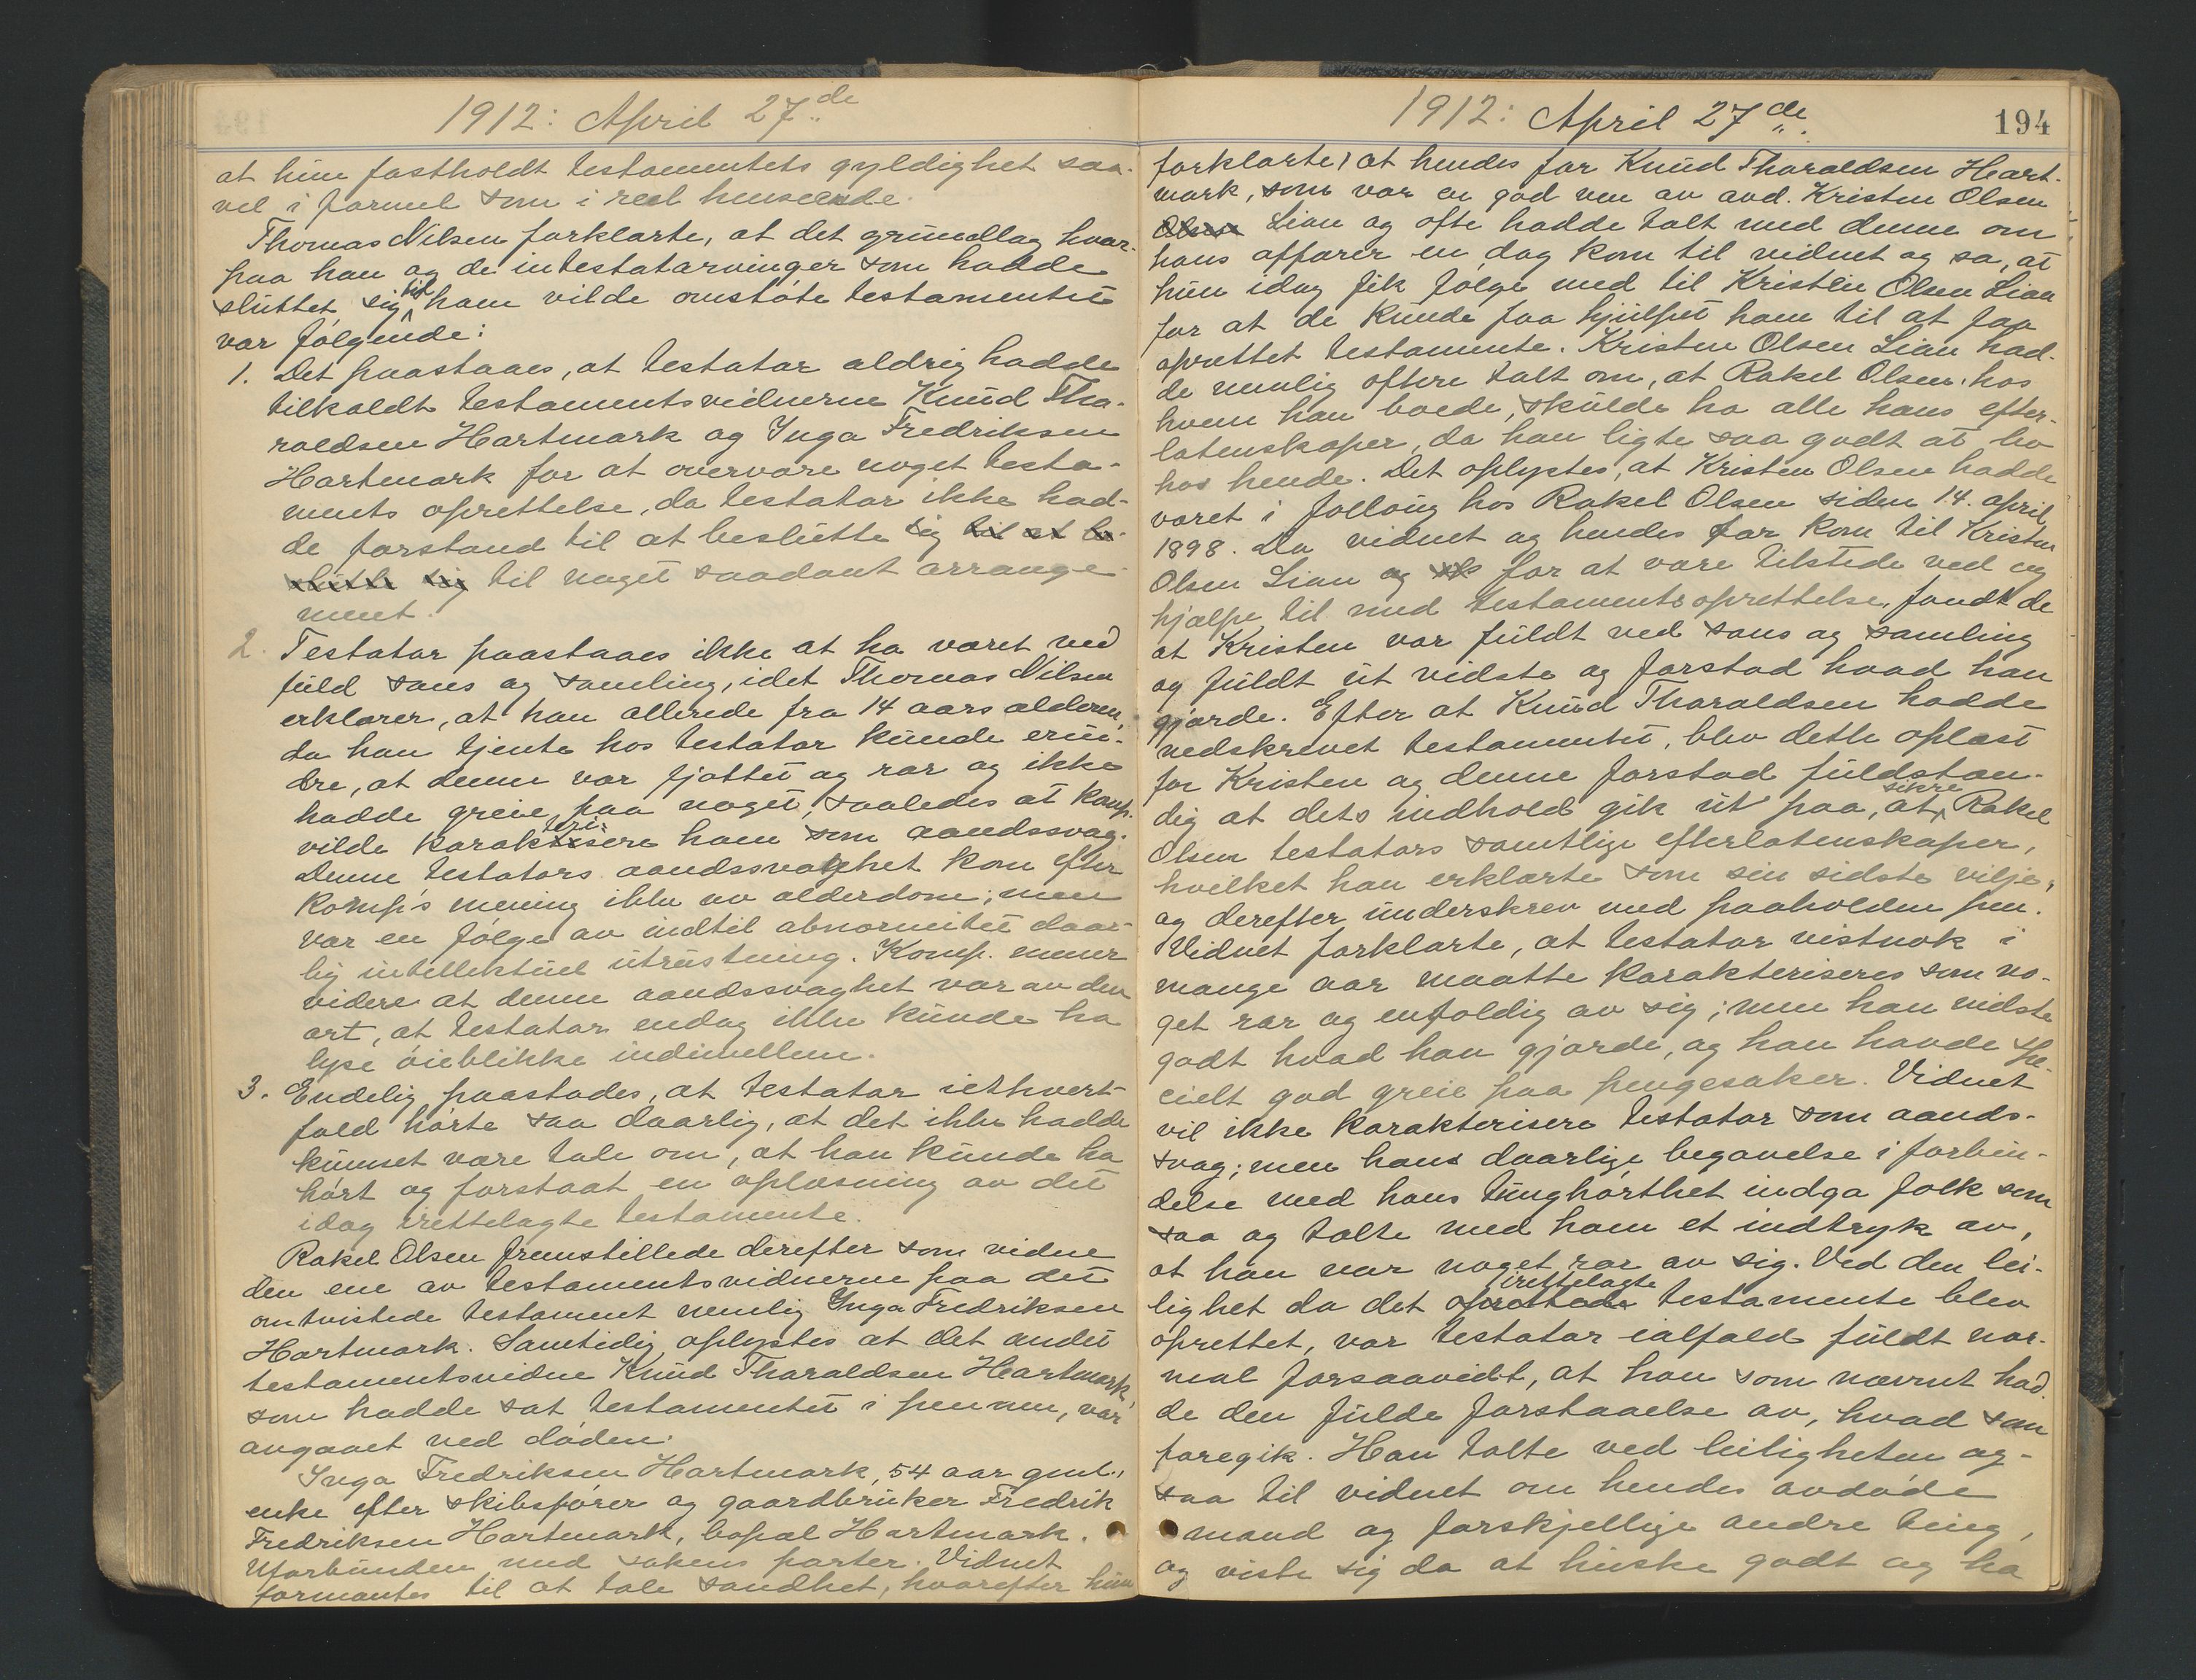 1912: April 27de
at hun fastholdt testamentets gyldighet saa-
vel i formel som i reel henseende.
Thomas Nilsen forklarte, at det grundlag hvor-
paa han og de intestatarvinger som hadde
sluttet sig til ham vilde omstøte testamentet
var følgende:
1. Det paastaaes, at testator aldrig hadde
tilkaldt testamentsvidnerne Knud Tha-
raldsen Hartmark og Inga Fredriksen
Hartmark for at overvære noget testa-
ments oprettelse, da testator ikke had-
de forstand til at beslutte sig til at be-
slutte sig til noget saadant arrange-
ment.
2. Testator paastaaes ikke at ha været ved
fuld sans og samling, idet Thomas Nilsen
erklærer, at han allerede fra 14 aars alderen,
da han tjente hos testator kunde erin-
dre, at denne var fjottet og rar og ikke
hadde greie paa noget, saaledes at komp.
vilde karakterisere ham som aandssvag.
Denne testators aandssvaghet kom efter
komp's mening ikke av alderdom; men
var en følge av indtil abnormitet daar-
lig intellektuel utrustning. Komp. mener
videre at denne aandssvaghet var av den
art, at testator endog ikke kunde ha
lyse øieblikke indimellem.
3. Endelig paastodes, at testator iethvert-
fald hørte saa daarlig, at det ikke hadde
kunnet være tale om, at han kunde ha
hørt og forstaat en oplæsning av det
idag irettelagte testamente.
Rakel Olsen fremstillede derefter som vidne
den ene av testamentsvidnerne paa det
omtvistede testament nemlig Inga Fredriksen
Hartmark. Samtidig oplystes at det andet
testamentsvidne Knud Tharaldsen Heartmark,
som hadde sat testamentet i pennen, var
avgaaet ved døden.
Inga Fredriksen Hartmark, 54 aar gml.,
enke efter skibsfører og gaardbruker Fredrik
Fredriksen Hartmark, bopæl Hartmark.
Uforbunden med sakens parter. Vidnet
formantes til at tale sandhet, hvorefter hun
1912: April 27de
194
forklarte, at hendes far Knud Tharaldsen Heart-
mark, som var en god ven av avd. Kristen Olsen
Olsen Lian og ofte hadde talt med denne om
hans affærer en dag kom til vidnet og sa, at
hun idag fik følge med til Kristen Olsen Lian
for at de kunde faa hjulpet ham til at faa
oprettet testamente. Kristen Olsen Lian had-
de nemlig oftere talt om, at Rakel Olsen, hos
hvem han boede, skulde ha alle hans efter-
latenskaper, da han ligte saa godt at bo
hos hende. Det oplystes, at Kristen Olsen hadde
været i follaug hos Rakel Olsen siden 14. april
1898. Da vidnet og hendes far kom til Kristen
Olsen Lian og for at være tilstede ved og
hjælpe til med testamentsoprettelse, fandt de
at Kristen var fuldt ved sans og samling
og fuldt ut vidste og forstod hvad han
gjorde. Efter at Knud Tharaldsen hadde
nedskrevet testamentet, blev dette oplæst
for Kristen og denne forstod fuldstæn-
dig at dets indhold gik ut paa, at sikre Rakel
Olsen testators samtlige efterlatenskaper,
hvilket han erklærte som sin sidste vilje,
og derefter underskrev med paaholden pen.
Vidnet forklarte, at testator vistnok i
mange aar maatte karakteriseres som no-
get rar og enfoldig av sig; men han vidste
godt hvad han gjorde, og han havde spe-
cielt god greie paa pengesaker. Vidnet
vil ikke karakterisere testator som aands-
svag; men hans daarlige begavelse i forbin-
delse med hans tunghørthet indga folk som
saa og talte med ham et indtryk av,
at han var noget rar av sig. Ved den lei-
lighet da det irettelagte testamente blev
oprettet, var testator ialfald fuldt nor-
mal forsaavidt, at han som nævnt had-
de den fulde forstaaelse av, hvad som
foregik. Han talte ved leiligheten og-
saa til vidnet om hendes avdøde
mand og forskjellige andre ting,
og viste sig da at huske godt og ha